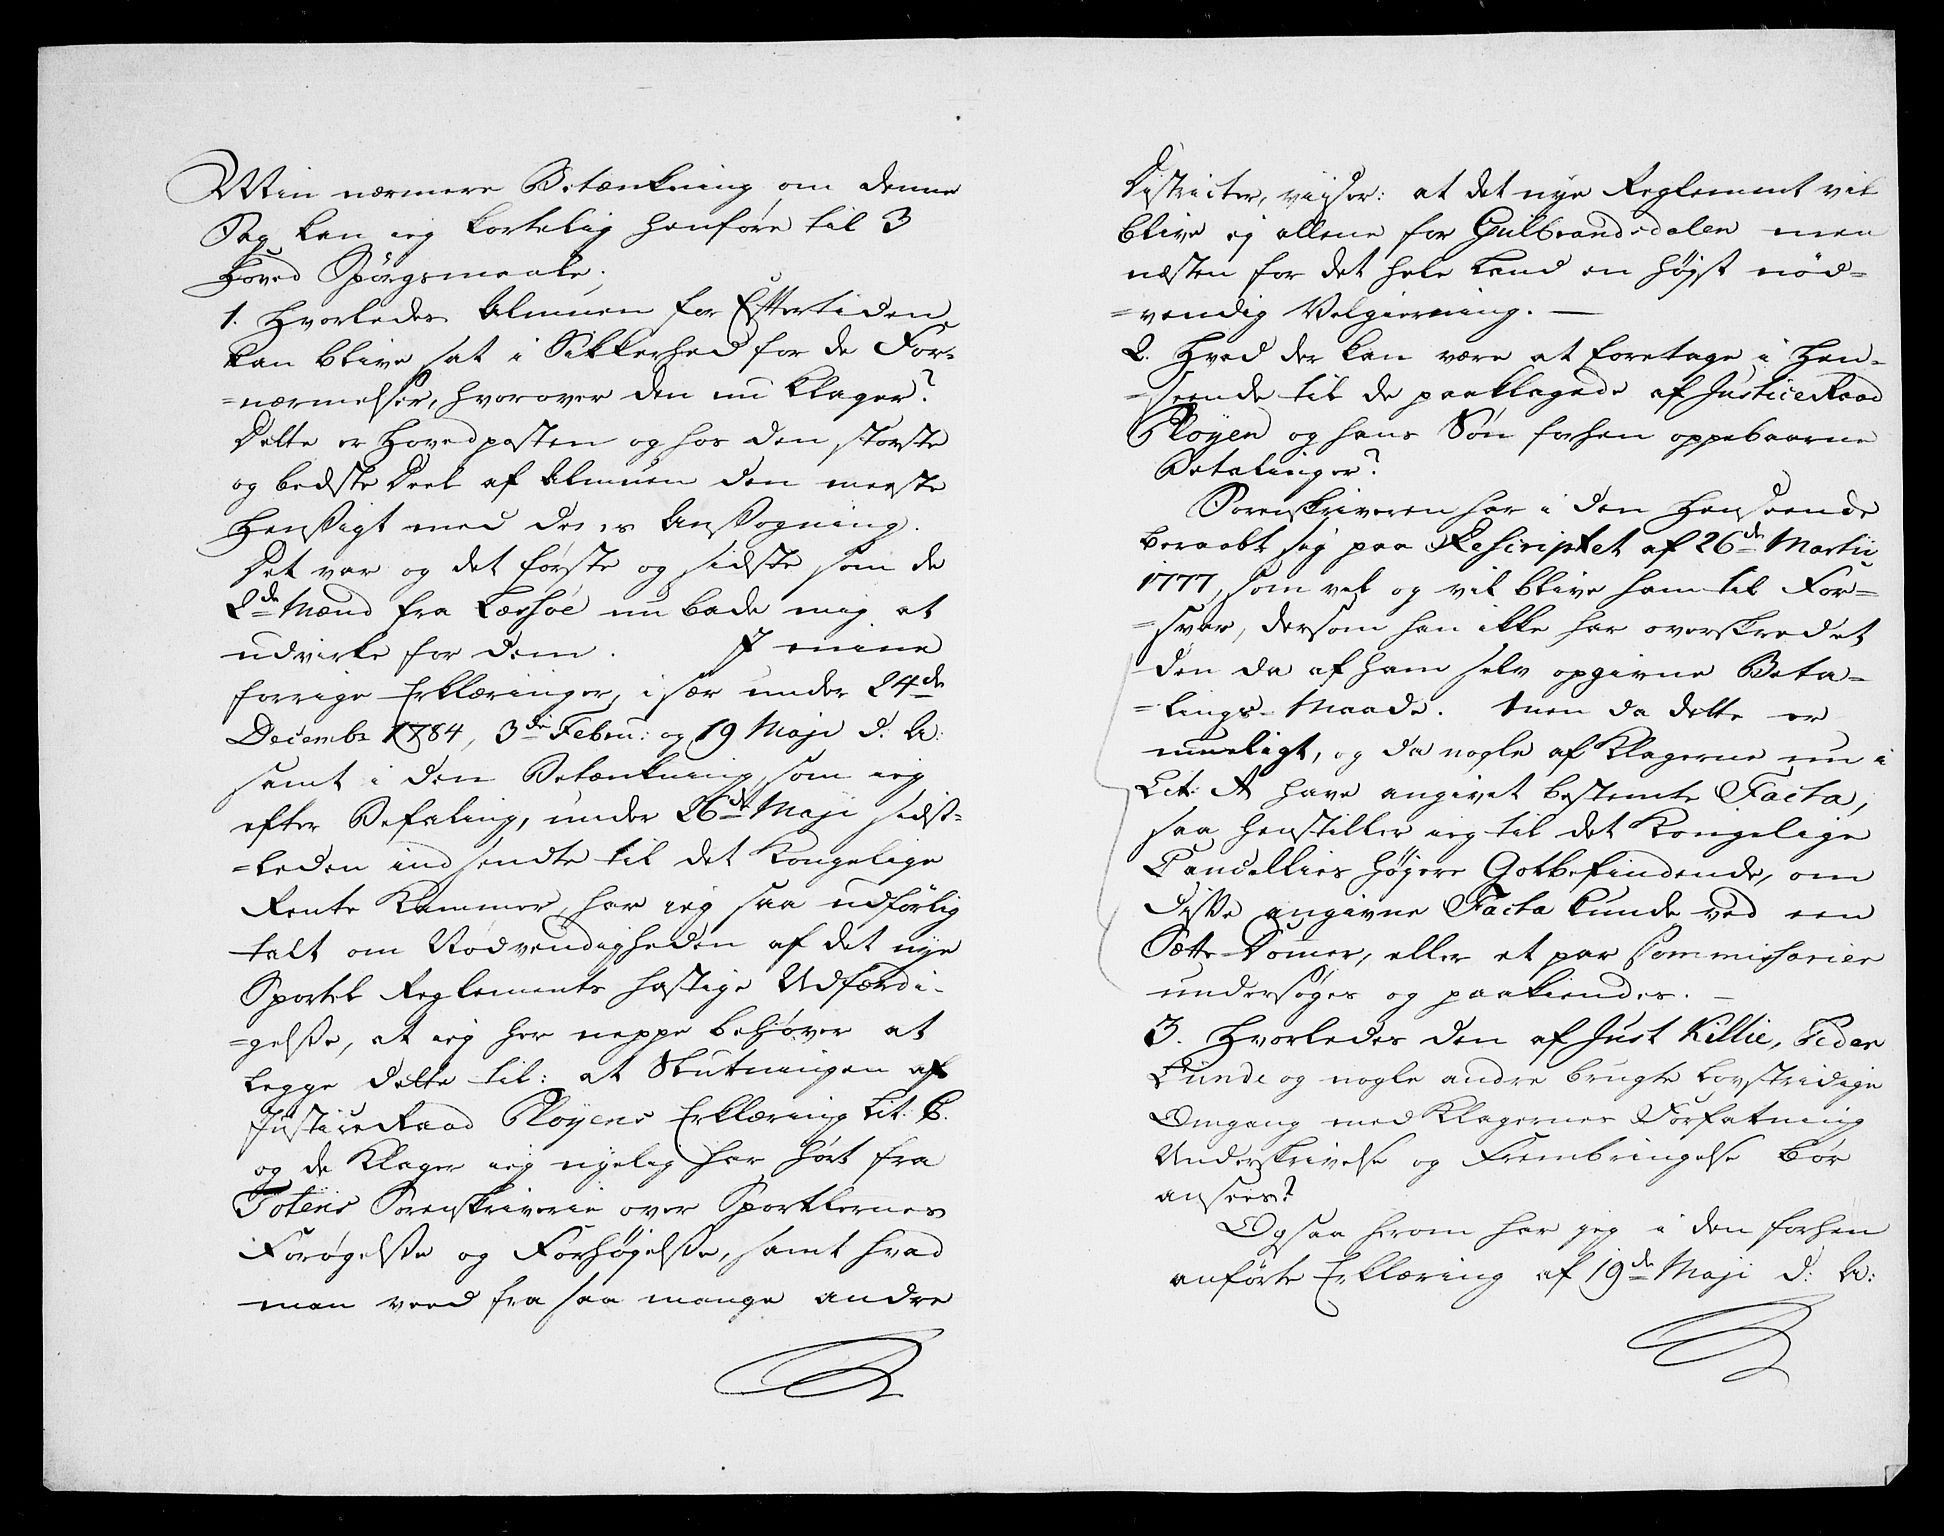 Min nærmere Betænkning om denne
Sag kan ieg kortelig henføre til 3
Hoved Spørgsmaale.
1. Hvorledes Almuen for Eftertiden
kan blive sat i Sikkerhed for de For-
=nærmelser, hvorover den nu klager?
Dette er Hovedposten og hos den største
og bedste Deel af Almuen den meeste
Hensigt med deres Ansøgning.
Det var og det første og sidste som de
2de Mænd fra Lessøe nu bade mig at
udvirke for dem. I mine
forrige Erklæringer, især under 24de
Decembr 1784, 3die Febru: og 19 Maji d. A:
samt i den Betænkning som ieg
efter Befaling, under 26de Maji sidst-
=leden indsendte til det Kongelige
Rente Kammer, har ieg saa udførlig
talt om Nødvendigheden af det nye
Sportel Reglements hastige Udfærdi-
=gelse, at ieg her neppe behøver at
legge dette til: at Slutningen af
Justice Raad Pløyens Erklæring Lit: B.
og de Klager ieg nyelig har hørt fra
Totens Sorenskriverie over Sportlernes
Forøgelse og Forhøjelse, samt hvad
man veed fra saa mange andre
Districter, viiser: at det nye Reglement vil
blive ej allene for Gulbrandsdalen men
næsten for det hele Land en højst nød-
=vendig Velgierning. —
2. Hvad der kan være at foretage i Hen-
=seende til de paaklagede af Justice Raad
Pløyen og hans Søn forhen oppebaarne
Betalinger?
Sorenskriveren har i den Henseende
beraabt sig paa Rescriptet af 26de Martii
1777, som vel og vil blive ham til For-
=svar, dersom han ikke har overskredet
den da af ham selv opgivne Beta-
=lings-Maade. Men da dette er
mueligt, og da nogle af Klagerne nu i
Lit: A have angivet bestemte Facta,
saa henstiller ieg til det Kongelige
Cancellies højere Gotbefindende, om
disse angivne Facta kunde ved een
Sætte-Dommer, eller et par Commissarier
undersøges og paakiendes. —
3. Hvorledes den af Just Killie, Peder
Lunde og nogle andre brugte lovstridige
Omgang med Klagernes Forfatning
Underskrivelse og Frembringelse bør
ansees?
Ogsaa herom har jeg i den forhen
anførte Erklæring af 19de Maji d: A: